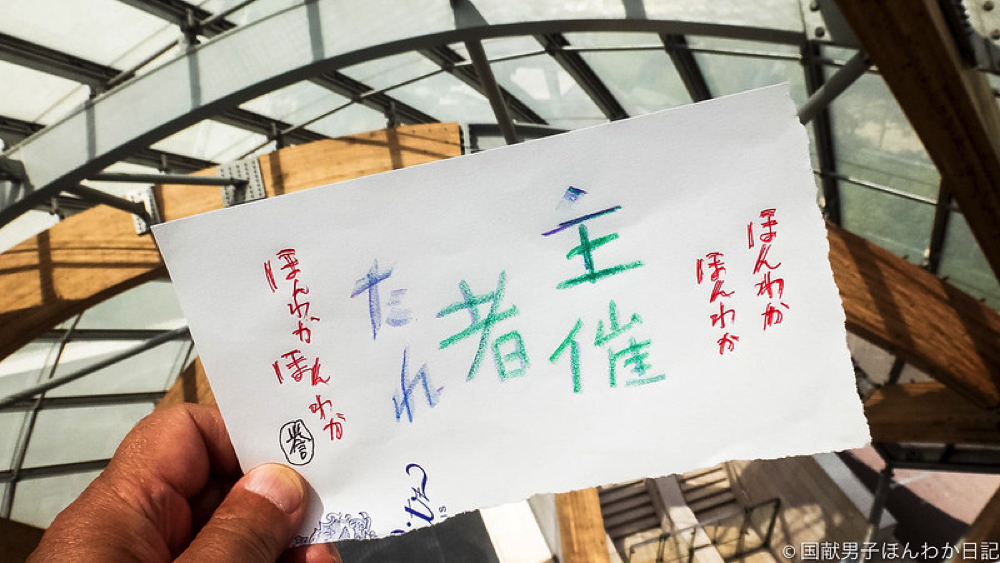 ほんわか
ほんわか
主催
者
たれ
ほんわか
ほんわか
誉
© 国献男子ほんわか日記